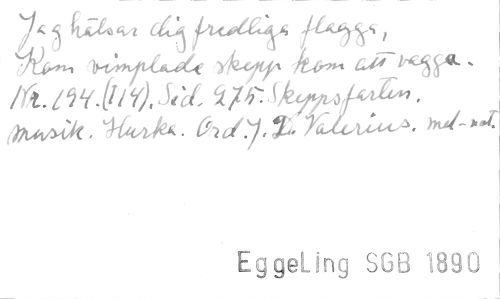 Jag hälsar dig fredliga flagga,
Kom vimplade skepp kom att vagga.
Nr. 194. (I 14). Sid. 275. Skeppsfarten.
musik. Hurka. Ord. J. D. Valerius. mel-not.
EggeLing SGB 1890